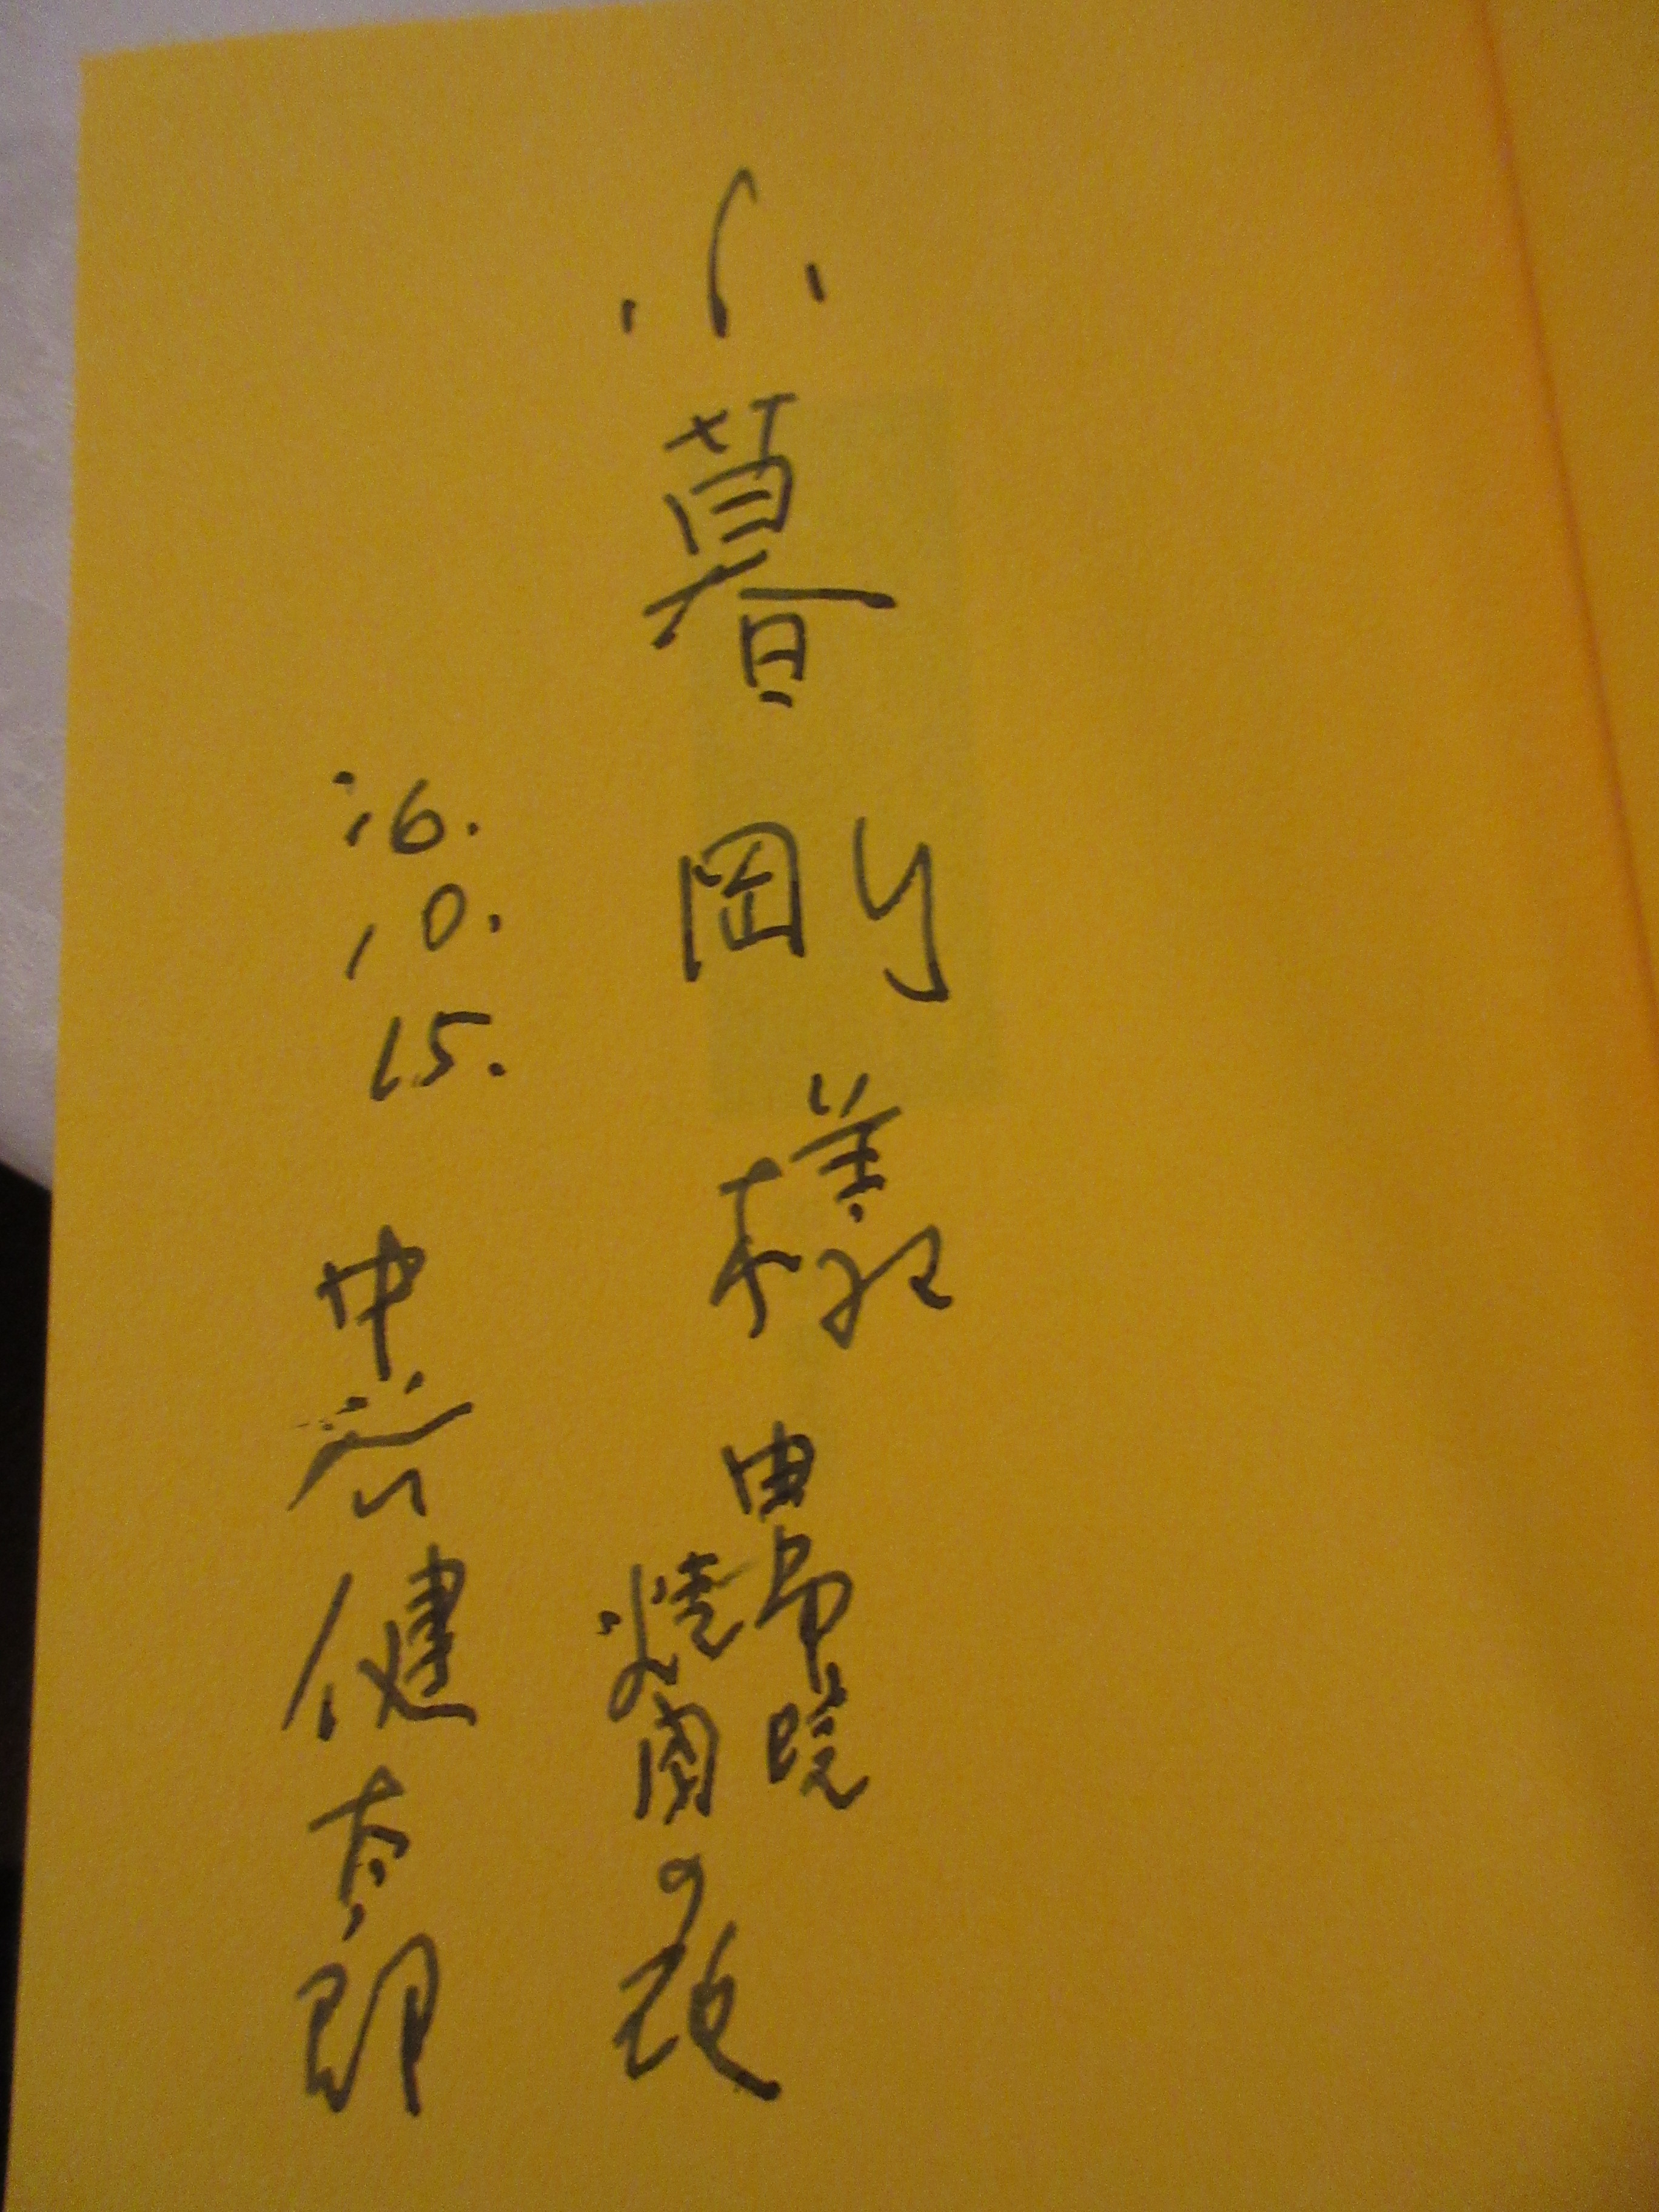 小暮剛様 由布院
焼肉の夜
'16.10.15. 中谷健太郎